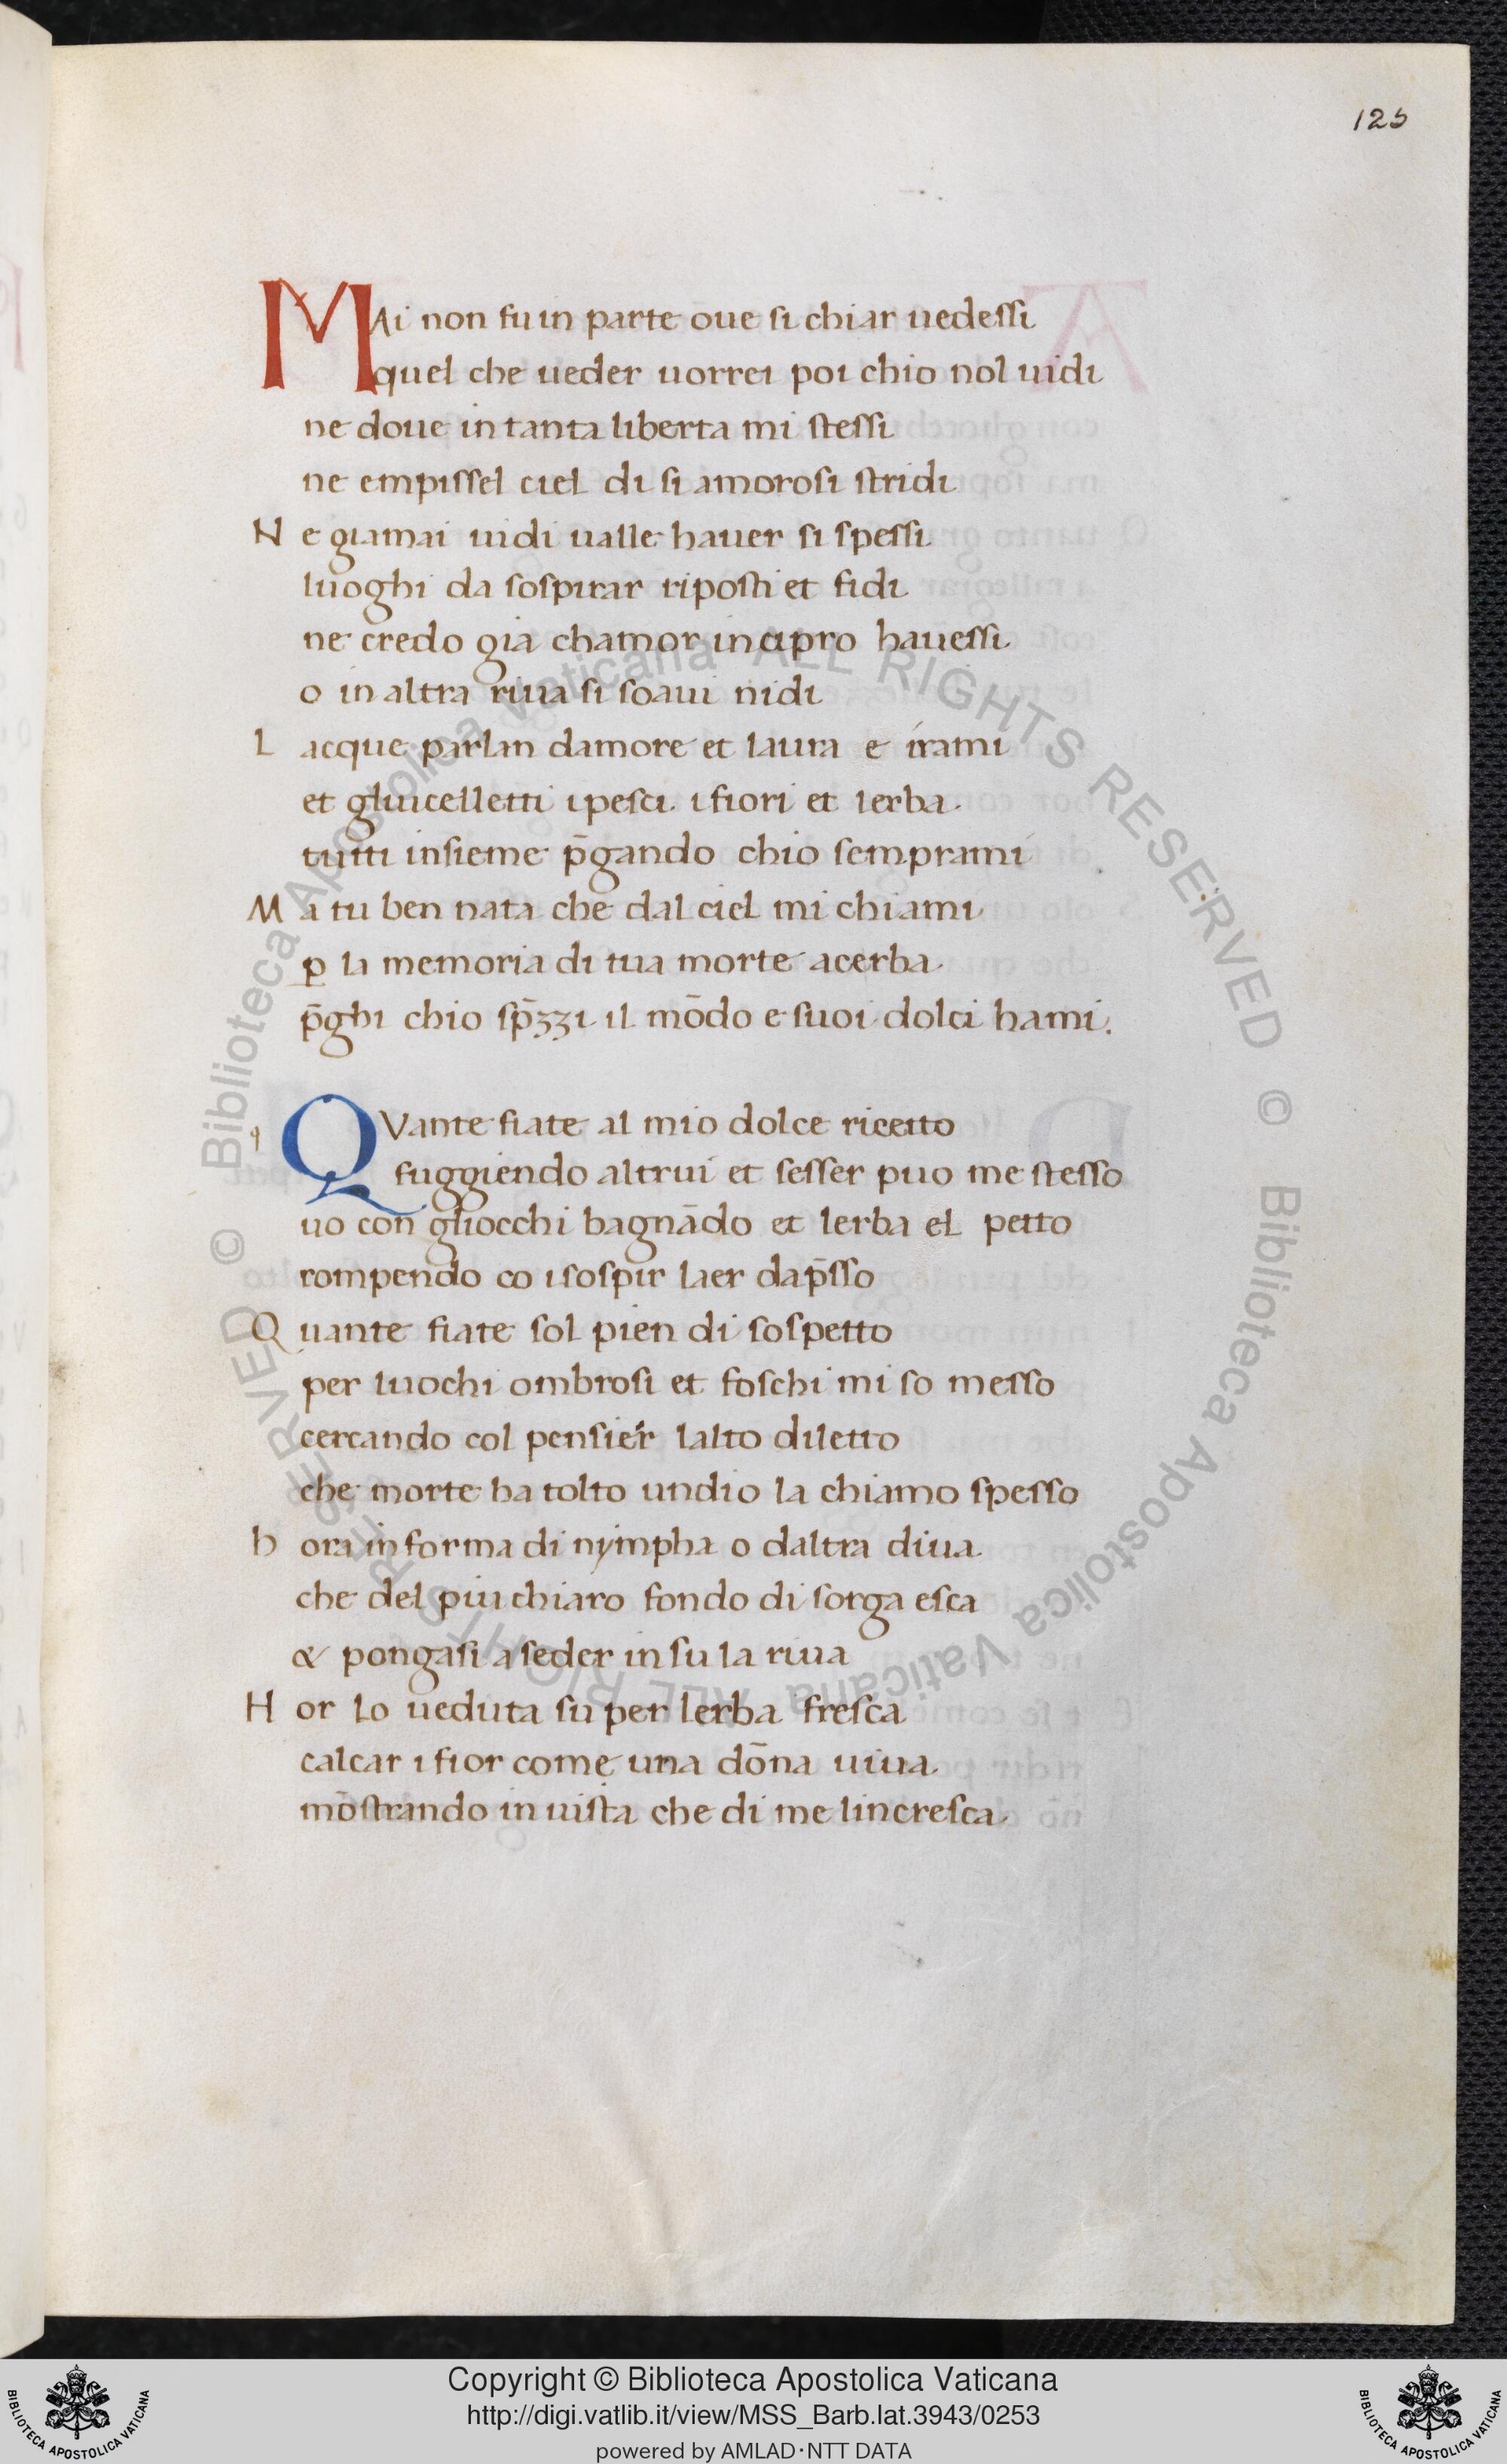 125
MAi non fu in parte oue si chiar uedessi
quel che ueder uorrei poi chio nol uidi
ne doue in tanta liberta mi stessi
ne empissel ciel di si amorosi stridi
N e giamai uidi ualle hauer si spessi
luoghi da sospirar riposti et fidi
ne credo gia chamor in cipro hauessi
o in altra riua si soaui nidi
L acque parlan damore et laura e irami
et gliuicelletti i pesci i fiori et lerba
tutti insieme p̄gando chio semprami
M a tu ben nata che dal ciel mi chiami
ꝑ la memoria di tua morte acerba
p̄ghi chio sp̄zzi il mōdo e suoi dolci hami.
q
QVante fiate al mio dolce ricetto
fuggiendo altrui et sesser puo me stesso
uo con gliocchi bagnādo et lerba el petto
rompendo co i sospir laer dap̄sso
Q uante fiate sol pien di sospetto
per luochi ombrosi et foschi mi so messo
cercando col pensier lalto diletto
che morte ha tolto undio la chiamo spesso
h ora in forma di nympha o daltra diua
che del piu chiaro fondo di sorga esca
& pongasi a seder in su la riua
H or lo ueduta su per lerba fresca
calcar i fior come una dōna uiua
mōstrando in uista che di me lincresca.
© Biblioteca Apostolica Vaticana ALL RIGHTS RESERVED © Biblioteca Apostolica Vaticana ALL RIGHTS RESERVED
Copyright © Biblioteca Apostolica Vaticana
http://digi.vatlib.it/view/MSS_Barb.lat.3943/0253
powered by AMLAD·NTT DATA
BIBLIOTECA APOSTOLICA VATICANA
BIBLIOTECA APOSTOLICA VATICANA